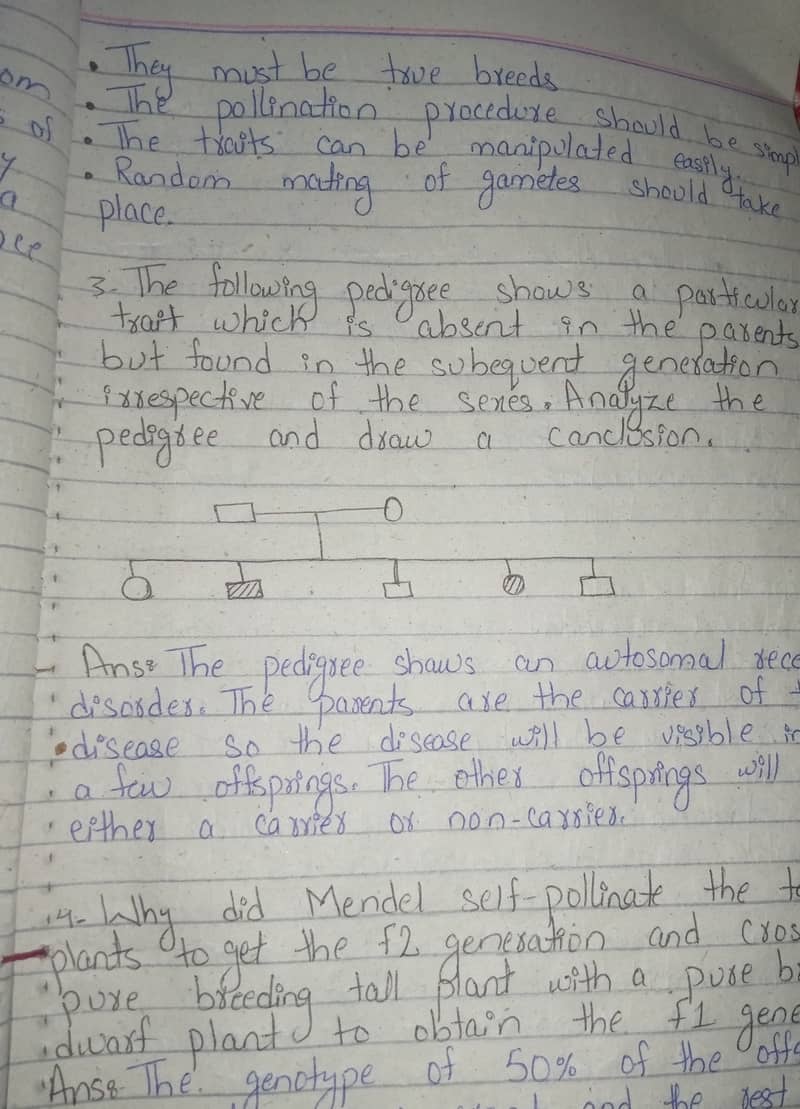 om
• They must be true breeds
• The pollination procedure should be simpl
s of
• The traits can be manipulated easily.
y
• Random mating of gametes should take
a
place.
3- The following pedigree shows a particular
trait which is absent in the parents
but found in the subequent generation
irrespective of the sexes. Analyze the
pedigree and draw a canclusion.
Ans: The pedigree shaws an autosomal rece
disorder. The parents are the carrier of t
disease so the disease will be visible in
a few offsprings. The other offsprings will
either a carrier or non-carrier.
4- Why did Mendel self-pollinate the
plants to get the f2 generation and cros
pure breeding tall plant with a pure b
dwarf plant to obtain the f1 gene
Ans: The genotype of 50% of the offs
and the rest